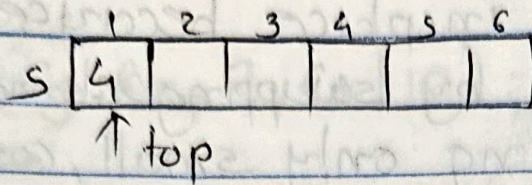 1 2 3 4 5 6
S 4
↑ top